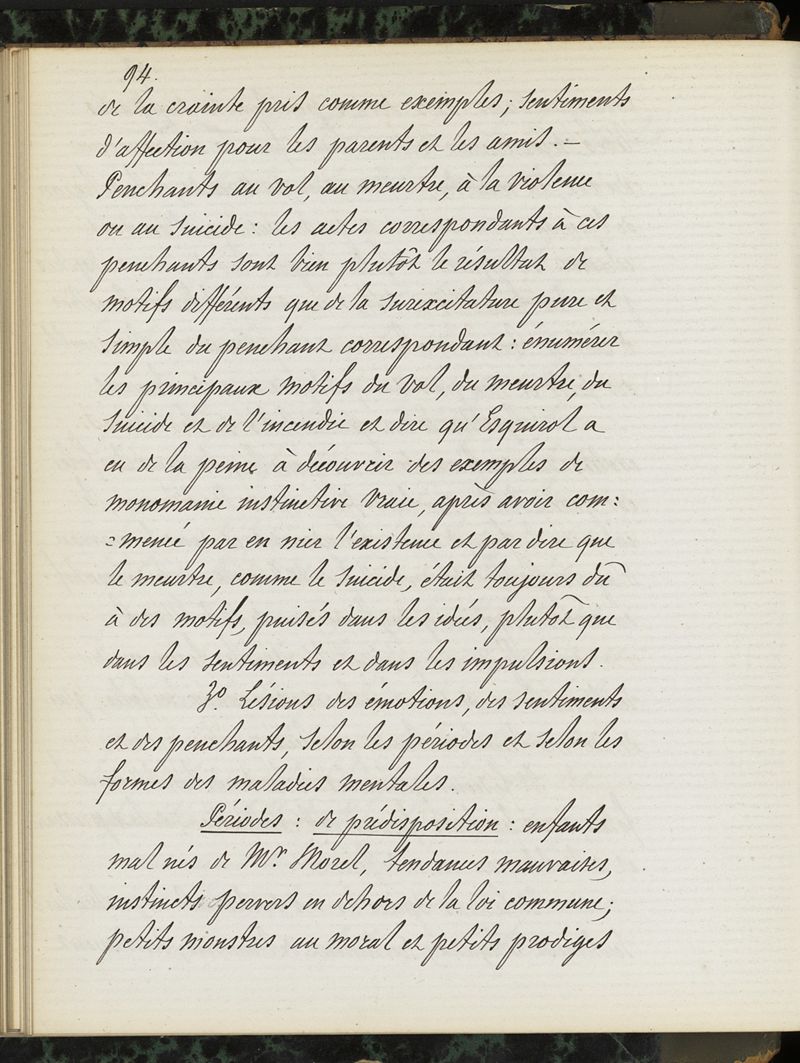 94.
de la crainte pris comme exemples; sentiments
d'affection pour les parents et les amis. —
Penchants au vol, au meurtre, à la violence
ou au suicide : les actes correspondants à ces
penchants sont bien plutôt le résultat de
motifs différents que de la surexcitature pure et
simple du penchant correspondant : énumérer
les principaux motifs du vol, du meurtre, du
suicide et de l'incendie et dire qu'Esquirol a
eu de la peine à découvrir des exemples de
monomanie instinctive vraie, après avoir com:
=mencé par en nier l'existence et par dire que
le meurtre, comme le suicide, était toujours dû
à des motifs, puisés dans les idées, plutôt que
dans les sentiments et dans les impulsions.
3º. Lésions des émotions, des sentiments
et des penchants, selon les périodes et selon les
formes des maladies mentales.
Périodes : de prédisposition : enfants
mal nés de Mr. Morel, tendances mauvaises,
instincts pervers en dehors de la loi commune;
petits monstres au moral et petits prodiges